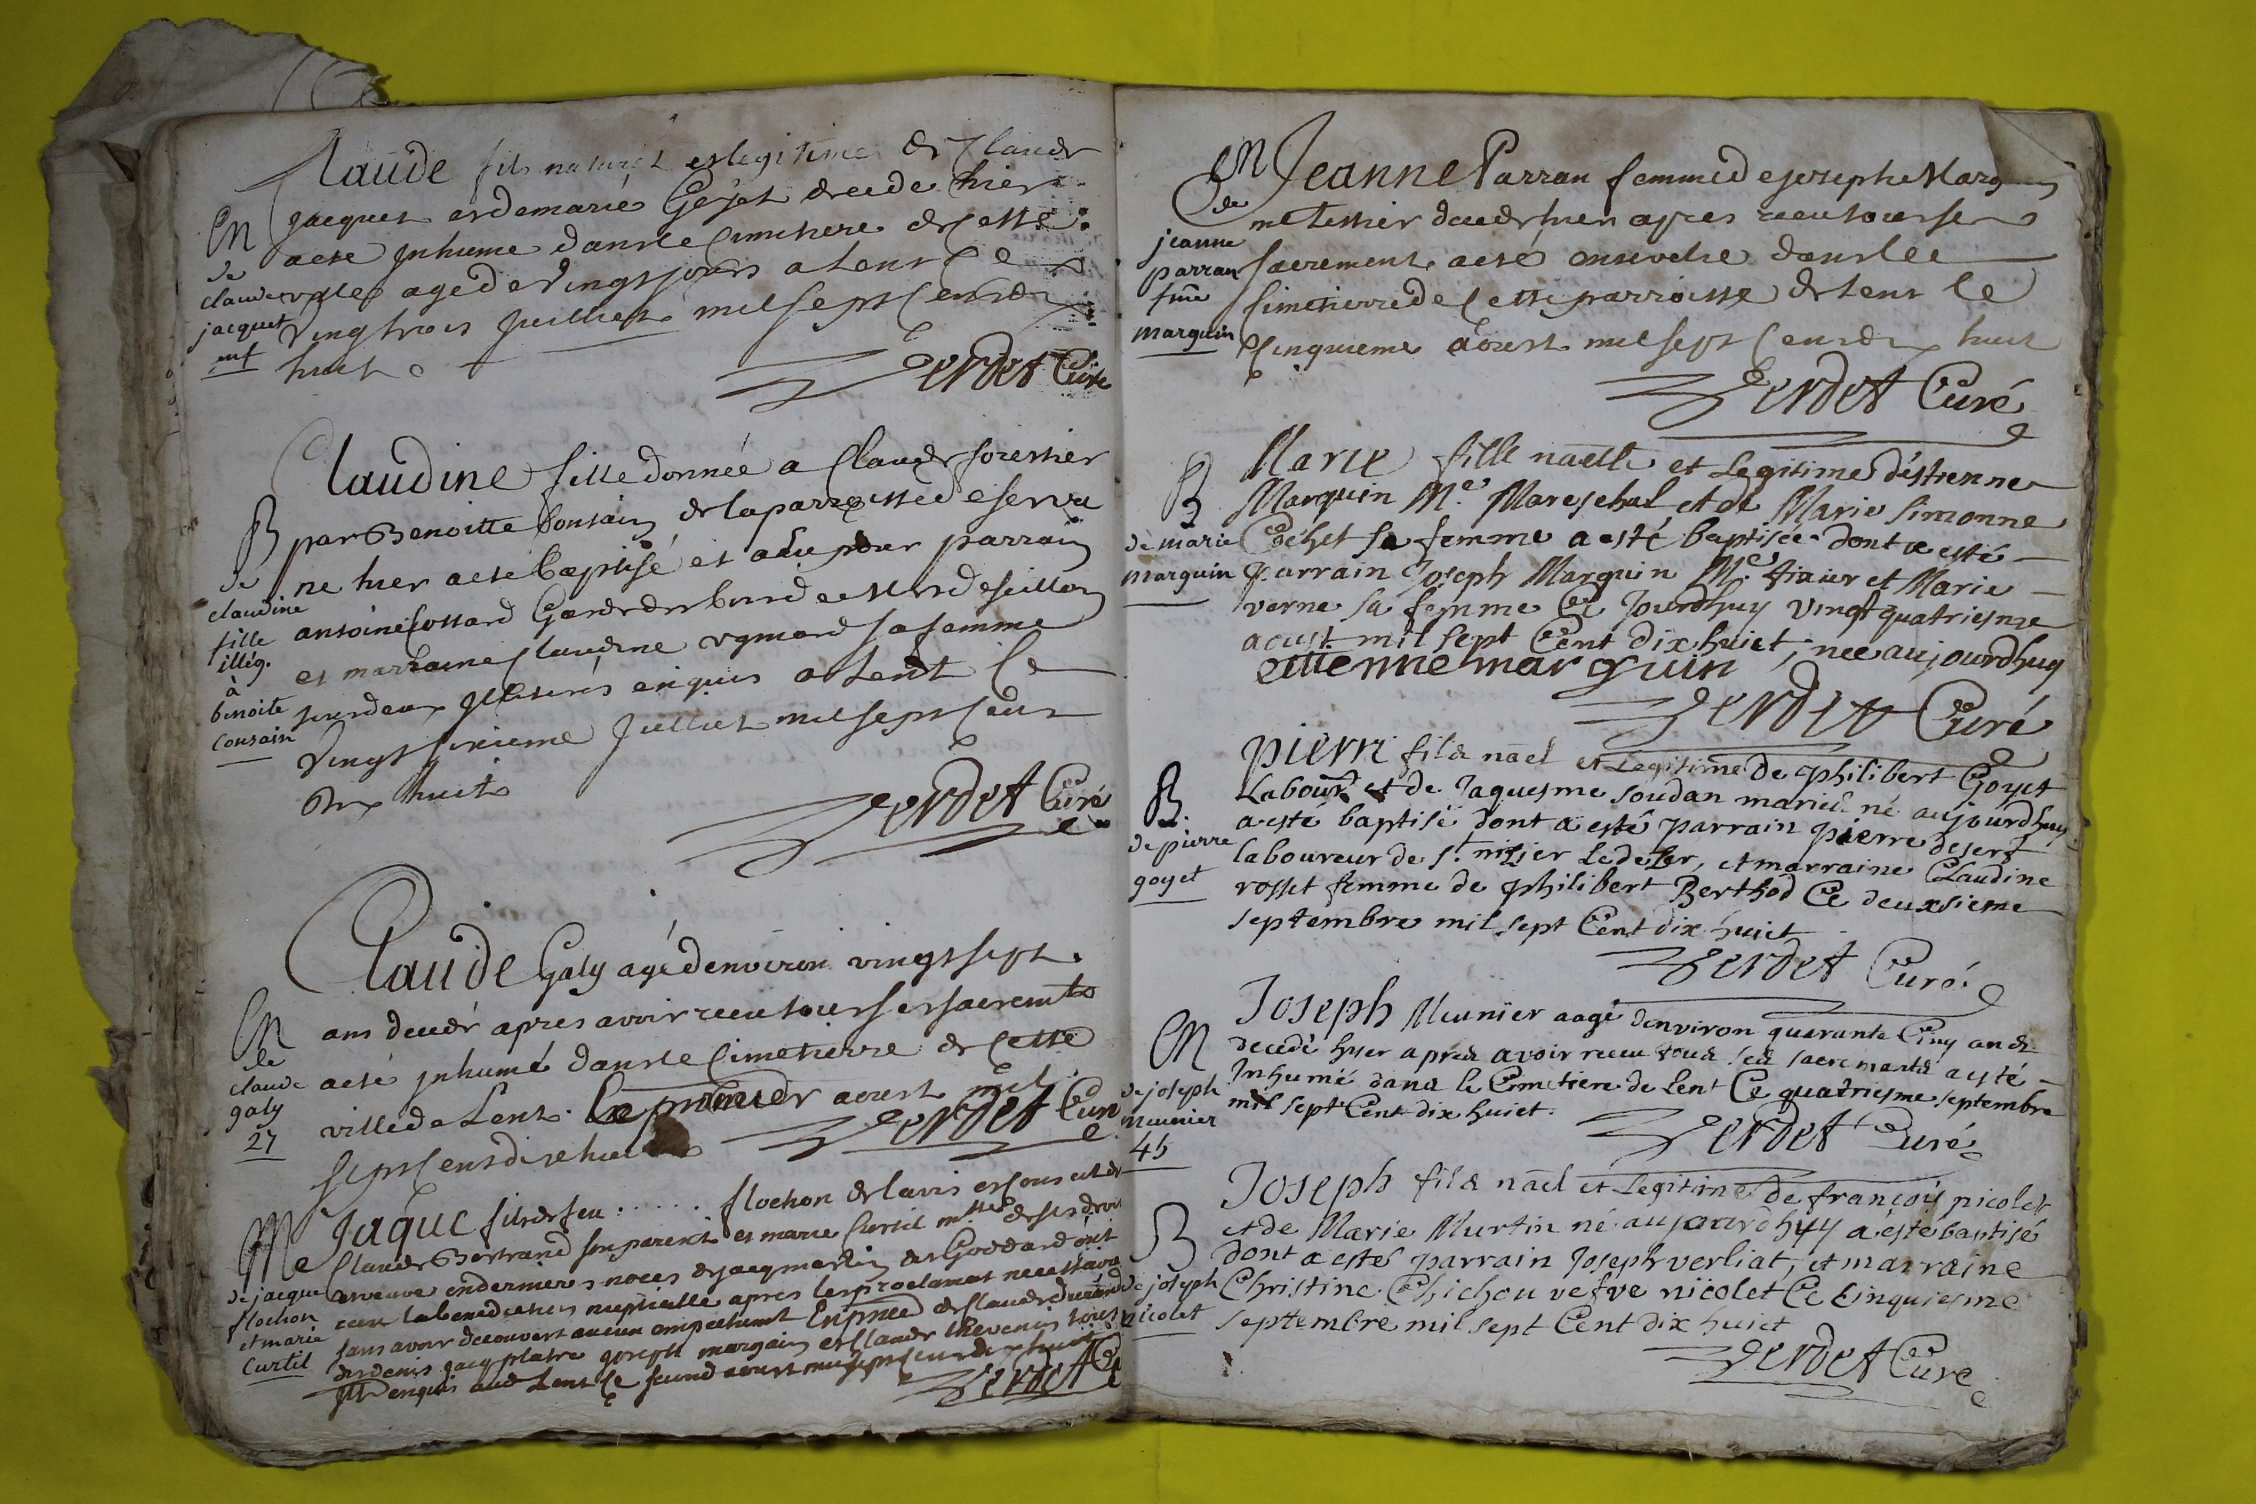 Claude fils naturel et legitime de Claude
jacquet et de marie Goyet decede hier
a ete inhume dans le Cimetiere de Cette
ville agé de vingt jours a Lent Ce
vingt trois juillet mil sept Cent dix
huit
Verdet Curé
En
de
claude
jacquet
enf
Claudine fille donnée a Claude forestier
par Benoitte Cousain de la parroisse de serva
ne hier a ete baptisé et a eu pour parrain
antoine Cossard Garde des bois de
et marraine Claudine sa femme
illiterés enquis a Lent le
vingt sixieme juillet mil sept Cent
dix huit
Verdet Curé
B
de
claudine
fille
illég.
à
benoite
cousain
Claude Galy agé denviron vingt sept
ans decedé apres avoir receu tous ses sacremts
a eté inhumé dans le Cimetierre de Cette
ville de Lent. Le premier aoust mil
sept Cent dix huit
Verdet Curé
En
de
claude
galy
27
Jaque fils de feu ...... flochon de lavis et Consent de
Claude Bertrand son parent et marie Curtil mtsse de ses droits
et veuve en dernieres noces de jacq merlin des Goddard ont
receu la benediction nuptialle apres les proclamat necessaires
sans avoir decouvert aucun empechemt En pnce de Claude durand
des denis jacq platre joseph marguin et Claude thevenin tous
illit enquis aud Lent Ce second aoust mil sept Cent dix huit
Verdet C
Me
de jacque
flochon
et marie
curtil
Jeanne Parran femme de joseph Marguin
me tissier decede hier apres receu tous ses
sacrements a eté ensevelie dans le
simetierre de Cette parroisse de Lent le
Cinquieme aoust mil sept Cent dix huit
Verdet Curé
En
de
jeanne
parran
fme
marguin
Marie fille naelle et Legitime d'éstienne
Marquin Me. Mareschal et de Marie Simonne
Cochet sa femme a esté baptisée dont a esté
parrain Joseph Marquin Me. tixier et Marie
verne sa femme Ce Jourdhuy vingt quatriesme
aoust mil sept Cent dix huict, nee aujourdhuy
ettienne marguin
Verdet Curé
B
de marie
marguin
pierre fils nael et Legitime de philibert Goyet
Labourr et de Jaquesme soudan mariés né aujourdhuy
a esté baptisé dont a esté parrain pierre desert
laboureur de st. nizier le desert, et marraine Claudine
rosset femme de philibert Berthod Ce deuxsieme
septembre mil sept Cent dix huict
Verdet Curé
B.
de pierre
goyet
Joseph Meunier aagé denviron quarante Cinq ans
decedé hyer apres avoir receu tous ses sacrements a esté
Inhumé dans le Cimetiere de Lent Ce quatriesme septembre
mil sept Cent dix huict.
Verdet Curé
En
de joseph
meunier
45
Joseph fils nael et Legitime de françois picolet
et de Marie Murtin né aujourdhuy a esté baptisé
dont a esté parrain Joseph verliat, et marraine
Christine Chichou vefve nicolet Ce Cinquiesme
septembre mil sept Cent dix huict
Verdet Curé
B
de joseph
nicolet